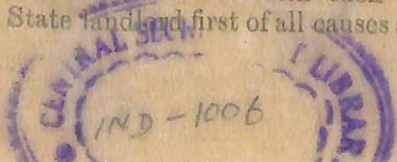 State landlord first of all causes
CENTRAL SECR T LIBRAR
IND-1006